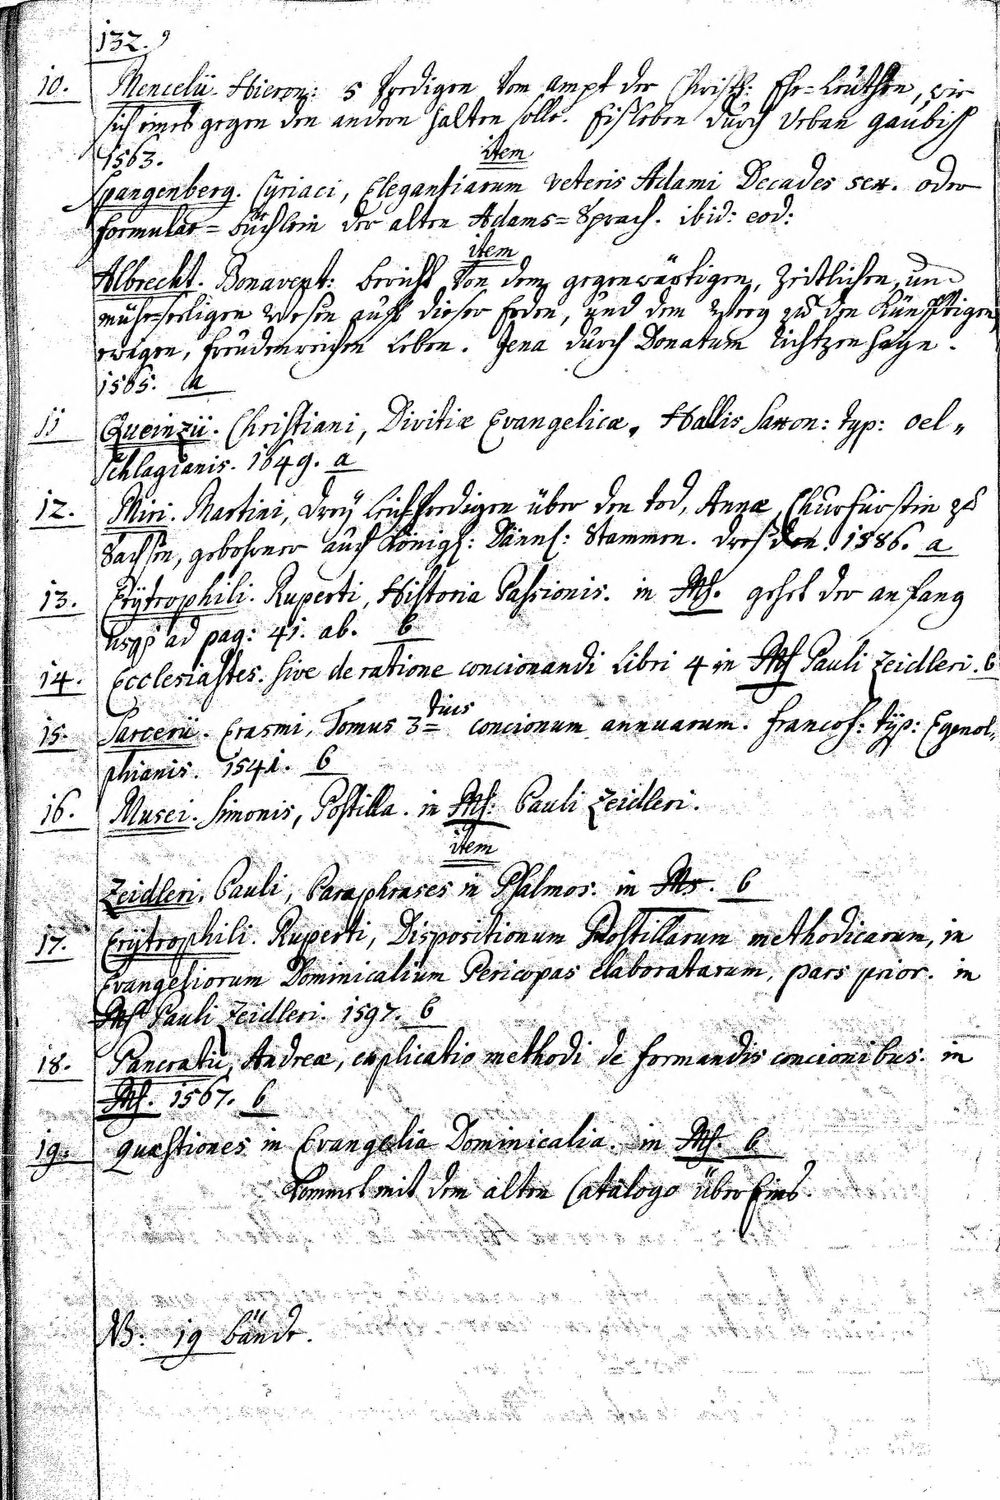 132.
10. Mencelii. Hieron: 5 Predigen vom ampt der Christl: Ehe=Leuthen, wie
sich eines gegen den andern halten solle. Eisleben durch Urban Gaubisch
1563.
item
Spangenberg. Cyriaci, Elegantiarum veteris Adami Decades sex. oder
Formular=büchlein der alten Adams=Sprach. ibid: eod:
item
Albrecht. Bonavent: bericht von dem gegenwärtigen, Zeittlichen, und
mühseeligen Wesen auff dieser Erden, und dem Weeg zu den Künfftigen
ewigen, freudenreichen Leben. Jena durch Donatum Richtzenhayn.
1565. a
11 Queinzii. Christiani, Divitiæ Evangelicæ. Hallis Saxon: typ: Oel=
schlagianis. 1649. a
12. Miri. Martini, drey Leichpredigen über den tod, Annæ, Churfürstin zu
Sachsen, gebohrner auß Königl: Dännl: Stammen. Dresden. 1586. a
13. Erÿtrophili. Ruperti, Historia Passionis. in Ms. gehet der anfang
usqs ad pag: 41. ab. b
14. Ecclesiastes. sive de ratione concionandi Libri 4 in Ms Pauli Zeidleri. b
15. Sarcerii. Erasmi, Tomus 3tius concionum annuarum. Francof: typ: Egenol=
phianis. 1541. b
16. Musei. Simonis, Postilla. in Ms: Pauli Zeidleri.
item
Zeidleri, Pauli, Paraphrases in Psalmos. in Ms. b
17. Erÿtrophili. Ruperti, Dispositionum Postillarum methodicarum, in
Evangeliorum Dominicalium Pericopas elaboratarum, pars prior. in
Ms Pauli Zeidleri. 1597. b
18. Pancratii, Andreæ, explicatio methodi de formandis concionibus. in
Ms. 1567. b
19. quæstiones in Evangelia Dominicalia. in Ms. b
Kommet mit dem alten Catalogo überEins.
NB. 19 bände.